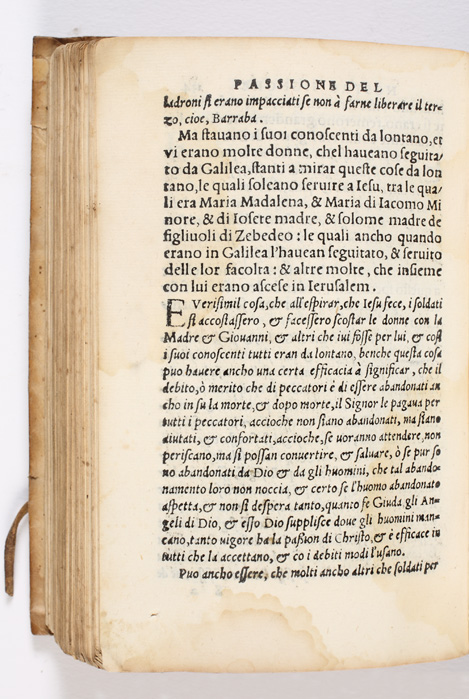 PASSIONE DEL
ladroni si erano impacciati se non à farne liberare il ter-
zo, cioe, Barraba.
Ma stauano i suoi conoscenti da lontano, et
vi erano molte donne, chel haueano seguita
to da Galilea, stanti a mirar queste cose da lon
tano, le quali soleano seruire a Iesu, tra le qua/
li era Maria Madalena, & Maria di Iacomo Mi
nore, & di Iosete madre, & solome madre de
figliuoli di Zebedeo : le quali ancho quando
erano in Galilea l'hauean seguitato, & seruito
delle lor facolta : & altre molte, che insieme
con lui erano ascese in Ierusalem.
E Verisimil cosa, che all'espirar, che Iesu fece, i soldati
si accostassero, & facessero scostar le donne con la
Madre & Giouanni, & altri che iui fosse per lui, & cosi
i suoi conoscenti tutti eran da lontano, benche questa cosa
puo hauere ancho una certa efficacia à significar, che il
debito, ò merito che di peccatori è di essere abandonati an
cho in su la morte, & dopo morte, il Signor le pagaua per
tutti i peccatori, accioche non siano abandonati, ma siano
aiutati, & confortati, accioche, se uoranno attendere, non
periscano, ma si possan conuertire, & saluare, ò se pur so
no abandonati da Dio & da gli huomini, che tal abando-
namento loro non noccia, & certo se l'huomo abandonato
aspetta, & non si despera tanto, quanto fe Giuda, gli An-
geli di Dio, & esso Dio supplisce doue gli huomini man-
cano, tanto uigore ha la passion di Christo, & è efficace in
tutti che la accettano, & co i debiti modi l'usano.
Puo ancho essere, che molti ancho altri che soldati per